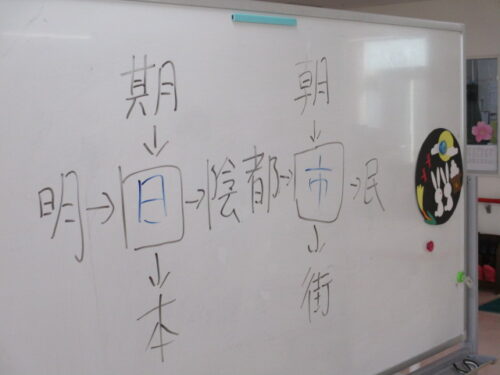 期 朝
↓ ↓
明→日→陰 都→市→民
↓ ↓
本 街